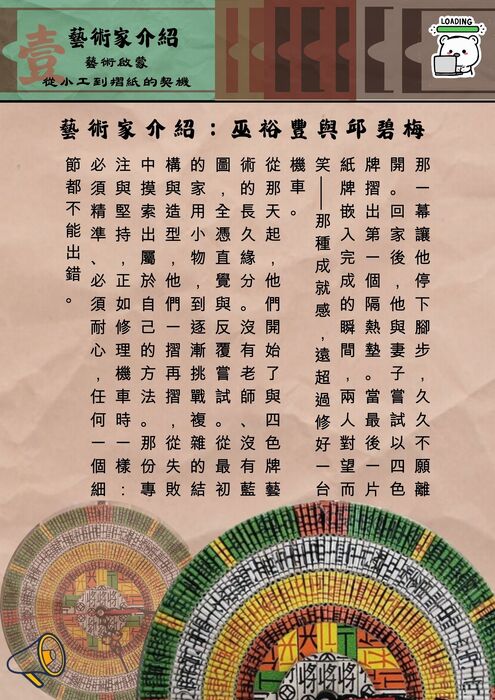 壹
藝術家介紹
藝術啟蒙
從小工到摺紙的契機
LOADING
藝術家介紹：巫裕豐與邱碧梅
那一幕讓他停下腳步，久久不願離
開。回家後，他與妻子嘗試以四色
牌摺出第一個隔熱墊。當最後一片
紙牌嵌入完成的瞬間，兩人對望而
笑──那種成就感，遠超過修好一台
機車。
從那天起，他們開始了與四色牌藝
術的長久緣分。沒有老師、沒有藍
圖，全憑直覺與反覆嘗試。從最初
的家用小物，到逐漸挑戰複雜的結
構與造型，他們一摺再摺，從失敗
中摸索出屬於自己的方法。那份專
注與堅持，正如修理機車時一樣：
必須精準、必須耐心，任何一個細
節都不能出錯。